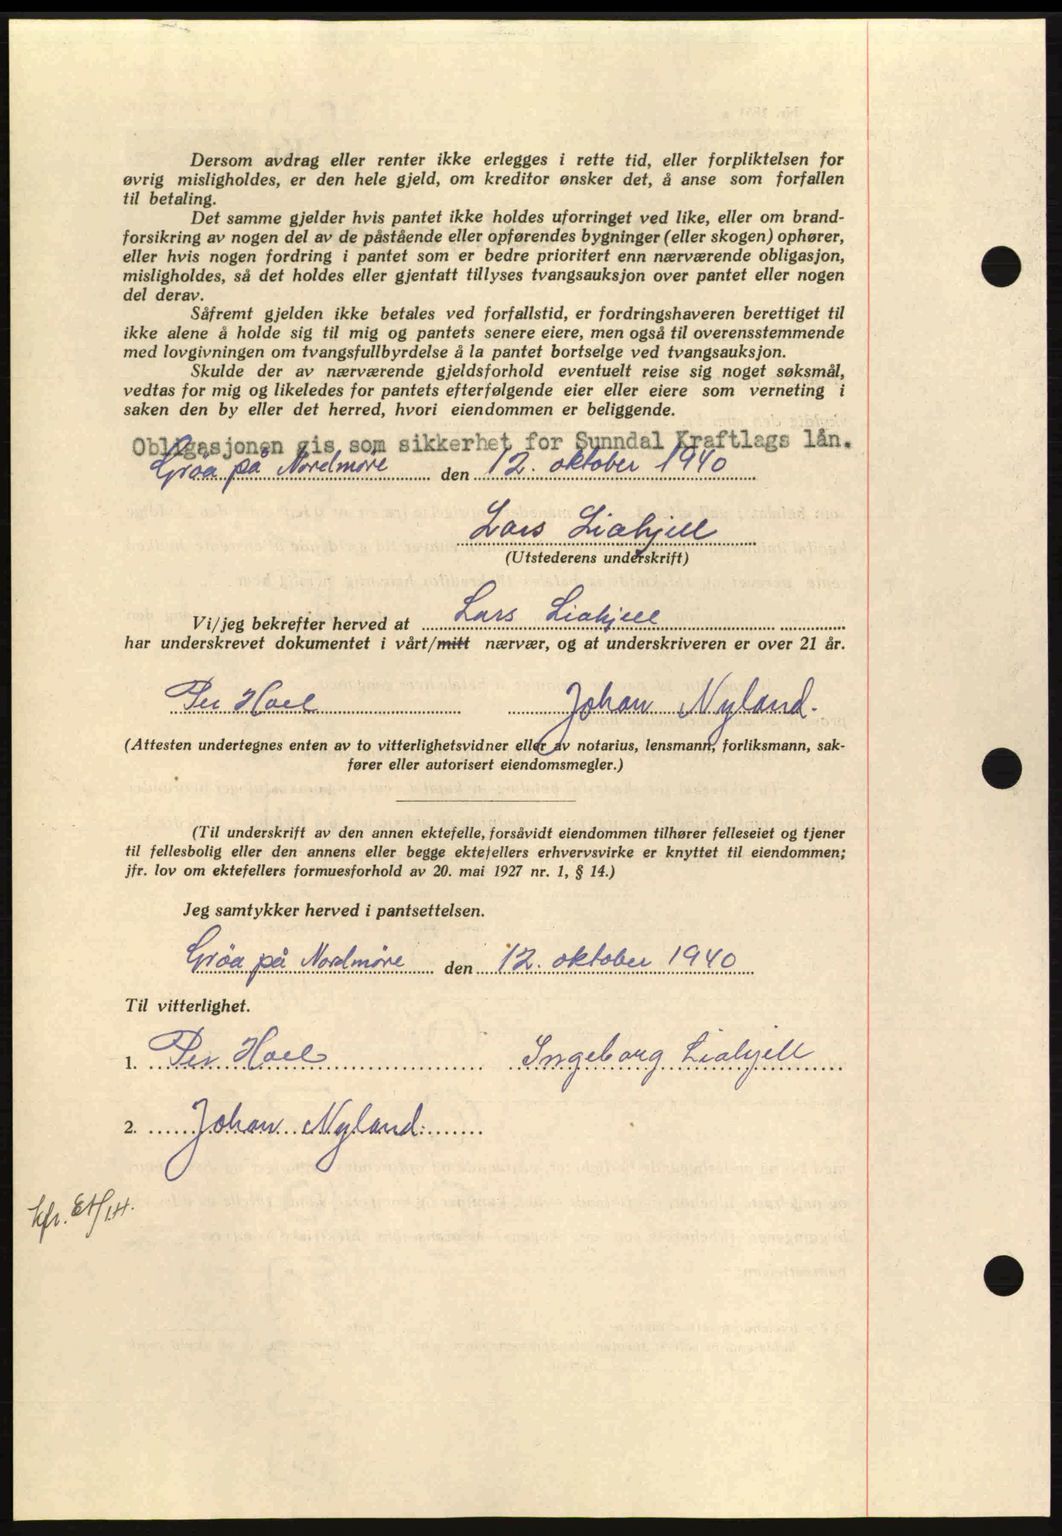 Dersom avdrag eller renter ikke erlegges i rette tid, eller forpliktelsen for
øvrig misligholdes, er den hele gjeld, om kreditor ønsker det, å anse som forfallen
til betaling.
Det samme gjelder hvis pantet ikke holdes uforringet ved like, eller om brand-
forsikring av nogen del av de påstående eller opførendes bygninger (eller skogen) ophører,
eller hvis nogen fordring i pantet som er bedre prioritert enn nærværende obligasjon,
misligholdes, så det holdes eller gjentatt tillyses tvangsauksjon over pantet eller nogen
del derav.
Såfremt gjelden ikke betales ved forfallstid, er fordringshaveren berettiget til
ikke alene å holde sig til mig og pantets senere eiere, men også til overensstemmende
med lovgivningen om tvangsfullbyrdelse å la pantet bortselge ved tvangsauksjon.
Skulde der av nærværende gjeldsforhold eventuelt reise sig noget søksmål,
vedtas for mig og likeledes for pantets efterfølgende eier eller eiere som verneting i
saken den by eller det herred, hvori eiendommen er beliggende.
Obligasjonen gis som sikkerhet for Sunndal Kraftlags lån.
Grøa på Nordmøre den 12. oktober 1940
Lars Liahjell
(Utstederens underskrift)
Vi/jeg bekrefter herved at Lars Liahjell
har underskrevet dokumentet i vårt/mitt nærvær, og at underskriveren er over 21 år.
Per Hoel Johan Nyland.
(Attesten undertegnes enten av to vitterlighetsvidner eller av notarius, lensmann, forliksmann, sak-
fører eller autorisert eiendomsmegler.)
(Til underskrift av den annen ektefelle, forsåvidt eiendommen tilhører felleseiet og tjener
til fellesbolig eller den annens eller begge ektefellers erhvervsvirke er knyttet til eiendommen;
jfr. lov om ektefellers formuesforhold av 20. mai 1927 nr. 1, § 14.)
Jeg samtykker herved i pantsettelsen.
Grøa på Nordmøre den 12. oktober 1940
Til vitterlighet.
1. Per Hoel Ingeborg Liahjell
2. Johan Nyland.